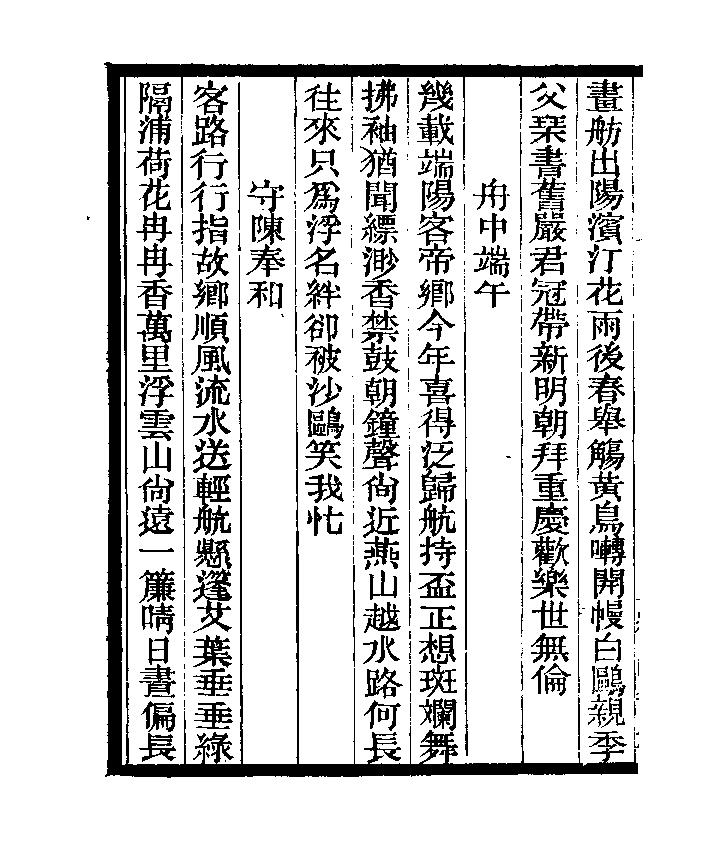 畫舫出陽濱汀花雨後春舉觴黃鳥囀開幔白鷗親季
父琹書舊嚴君冠帶新明朝拜重慶歡樂世無倫
舟中端午
幾載端陽客帝鄉今年喜得泛歸航持盃正想斑斕舞
拂袖猶聞縹渺香禁鼓朝鐘聲尙近燕山越水路何長
往來只爲浮名絆卻被沙鷗笑我忙
守陳奉和
客路行行指故鄉順風流水送輕航懸篷艾葉垂垂綠
隔浦荷花冉冉香萬里浮雲山尙遠一簾晴日晝偏長